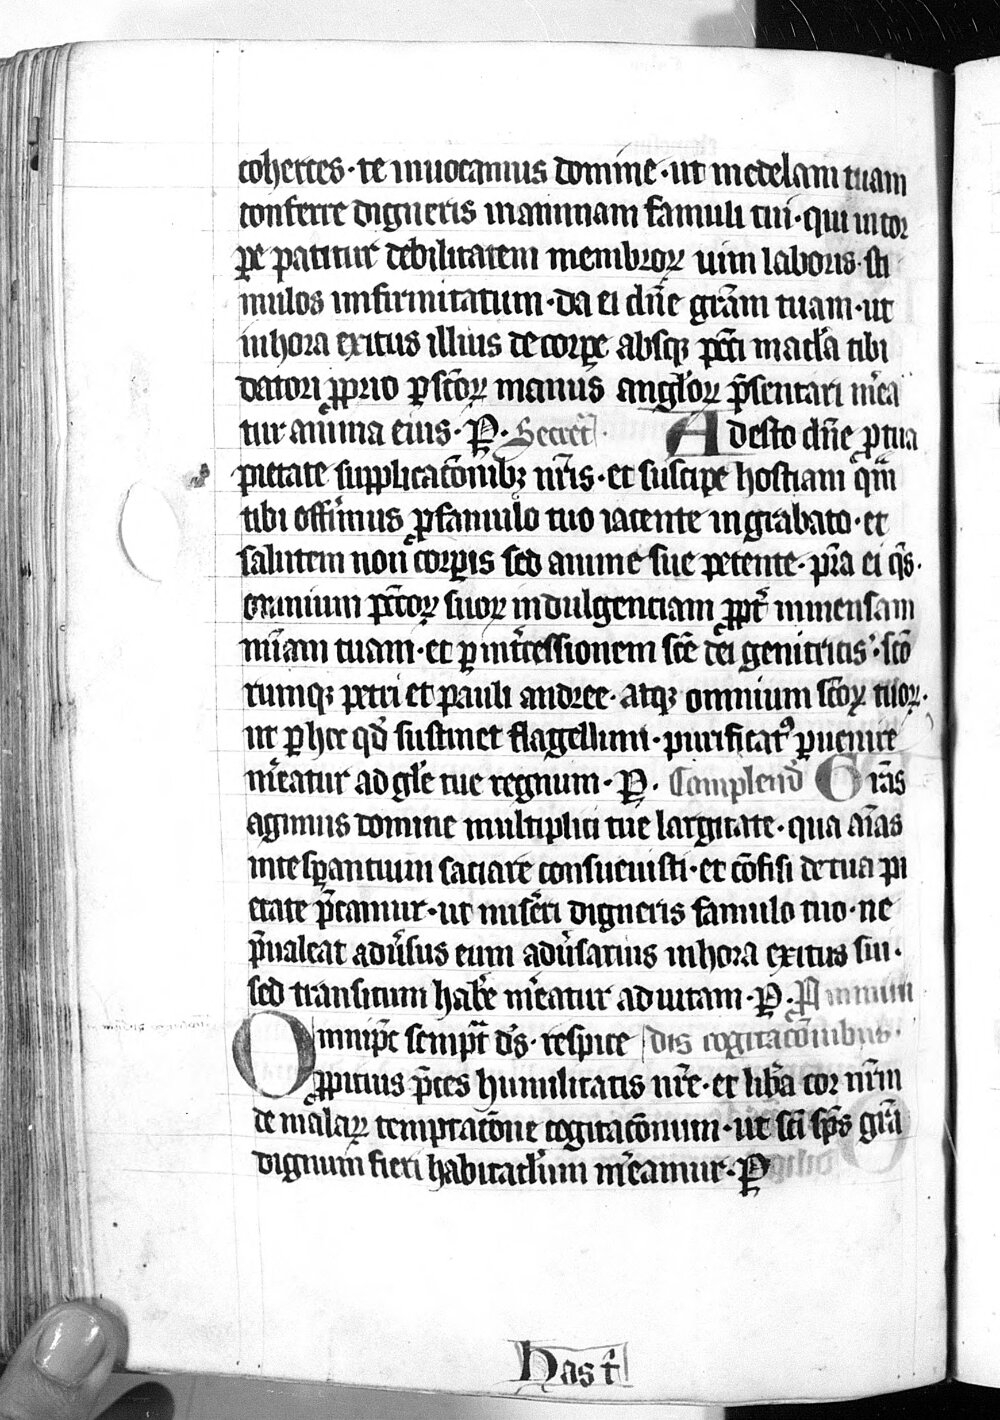 cohertes · te inuocamus domine · ut medelam tuam
conferre digneris in animam famuli tui · qui in cor
ꝑe patitur debilitatem membroꝝ uim laboris · sti
mulos infirmitatum · da ei dn̄e grām tuam · ut
in hora exitus illius de corꝑe absqꝫ pcc̄i macl̄a tibi
datori ꝓprio ꝑ scōꝝ manus angl̄oꝝ p̄sentari m̄ea
tur anima eius · P̶ · Secret̄ · Adesto dn̄e ꝓ tua
pietate supplicac̄onibꝫ nr̄is · et suscipe hostiam qm̄
tibi offim̄us ꝓ famulo tuo iacente in grabato · et
salutem non corꝑis sed anime sue petente · pr̄a ei qs̄ ·
omnium pcc̄oꝝ suoꝝ indulgenciam ꝓpt̄ inmensam
mīam tuam · et ꝑ int̄cessionem sc̄e dei genitricis · scō
rumqꝫ petri et pauli andree · atqꝫ omnium sc̄oꝝ tuoꝝ ·
ut ꝑ hec qd̄ sustinet flagellum · purificatꝰ ꝑuenire
m̄eatur ad gl̄e tue regnum · P̶ · Complend̄ Grās
agimus domine multiplici tue largitate · qua aīas
in te sꝑantium saciare consueuisti · et cōfisi de tua pi
etate p̄camur · ut mise᷒ri digneris famulo tuo · ne
p̄ualeat adūsus eum adūsarius in hora exitus sui ·
sed transitum habe᷒ m̄eatur ad uitam · P̶ ·
Omnipc̄ sempt̄ ds̄ · respice dis cogitac̄onibus ·
ꝓpitius p̄ces humilitatis nr̄e · et lib̄a cor nr̄m
de malaꝝ temptac̄one cogitac̄onum · ut sc̄i sp̄s grā
dignum fieri habitacl̄um m̄eamur · P̶
Has t̄